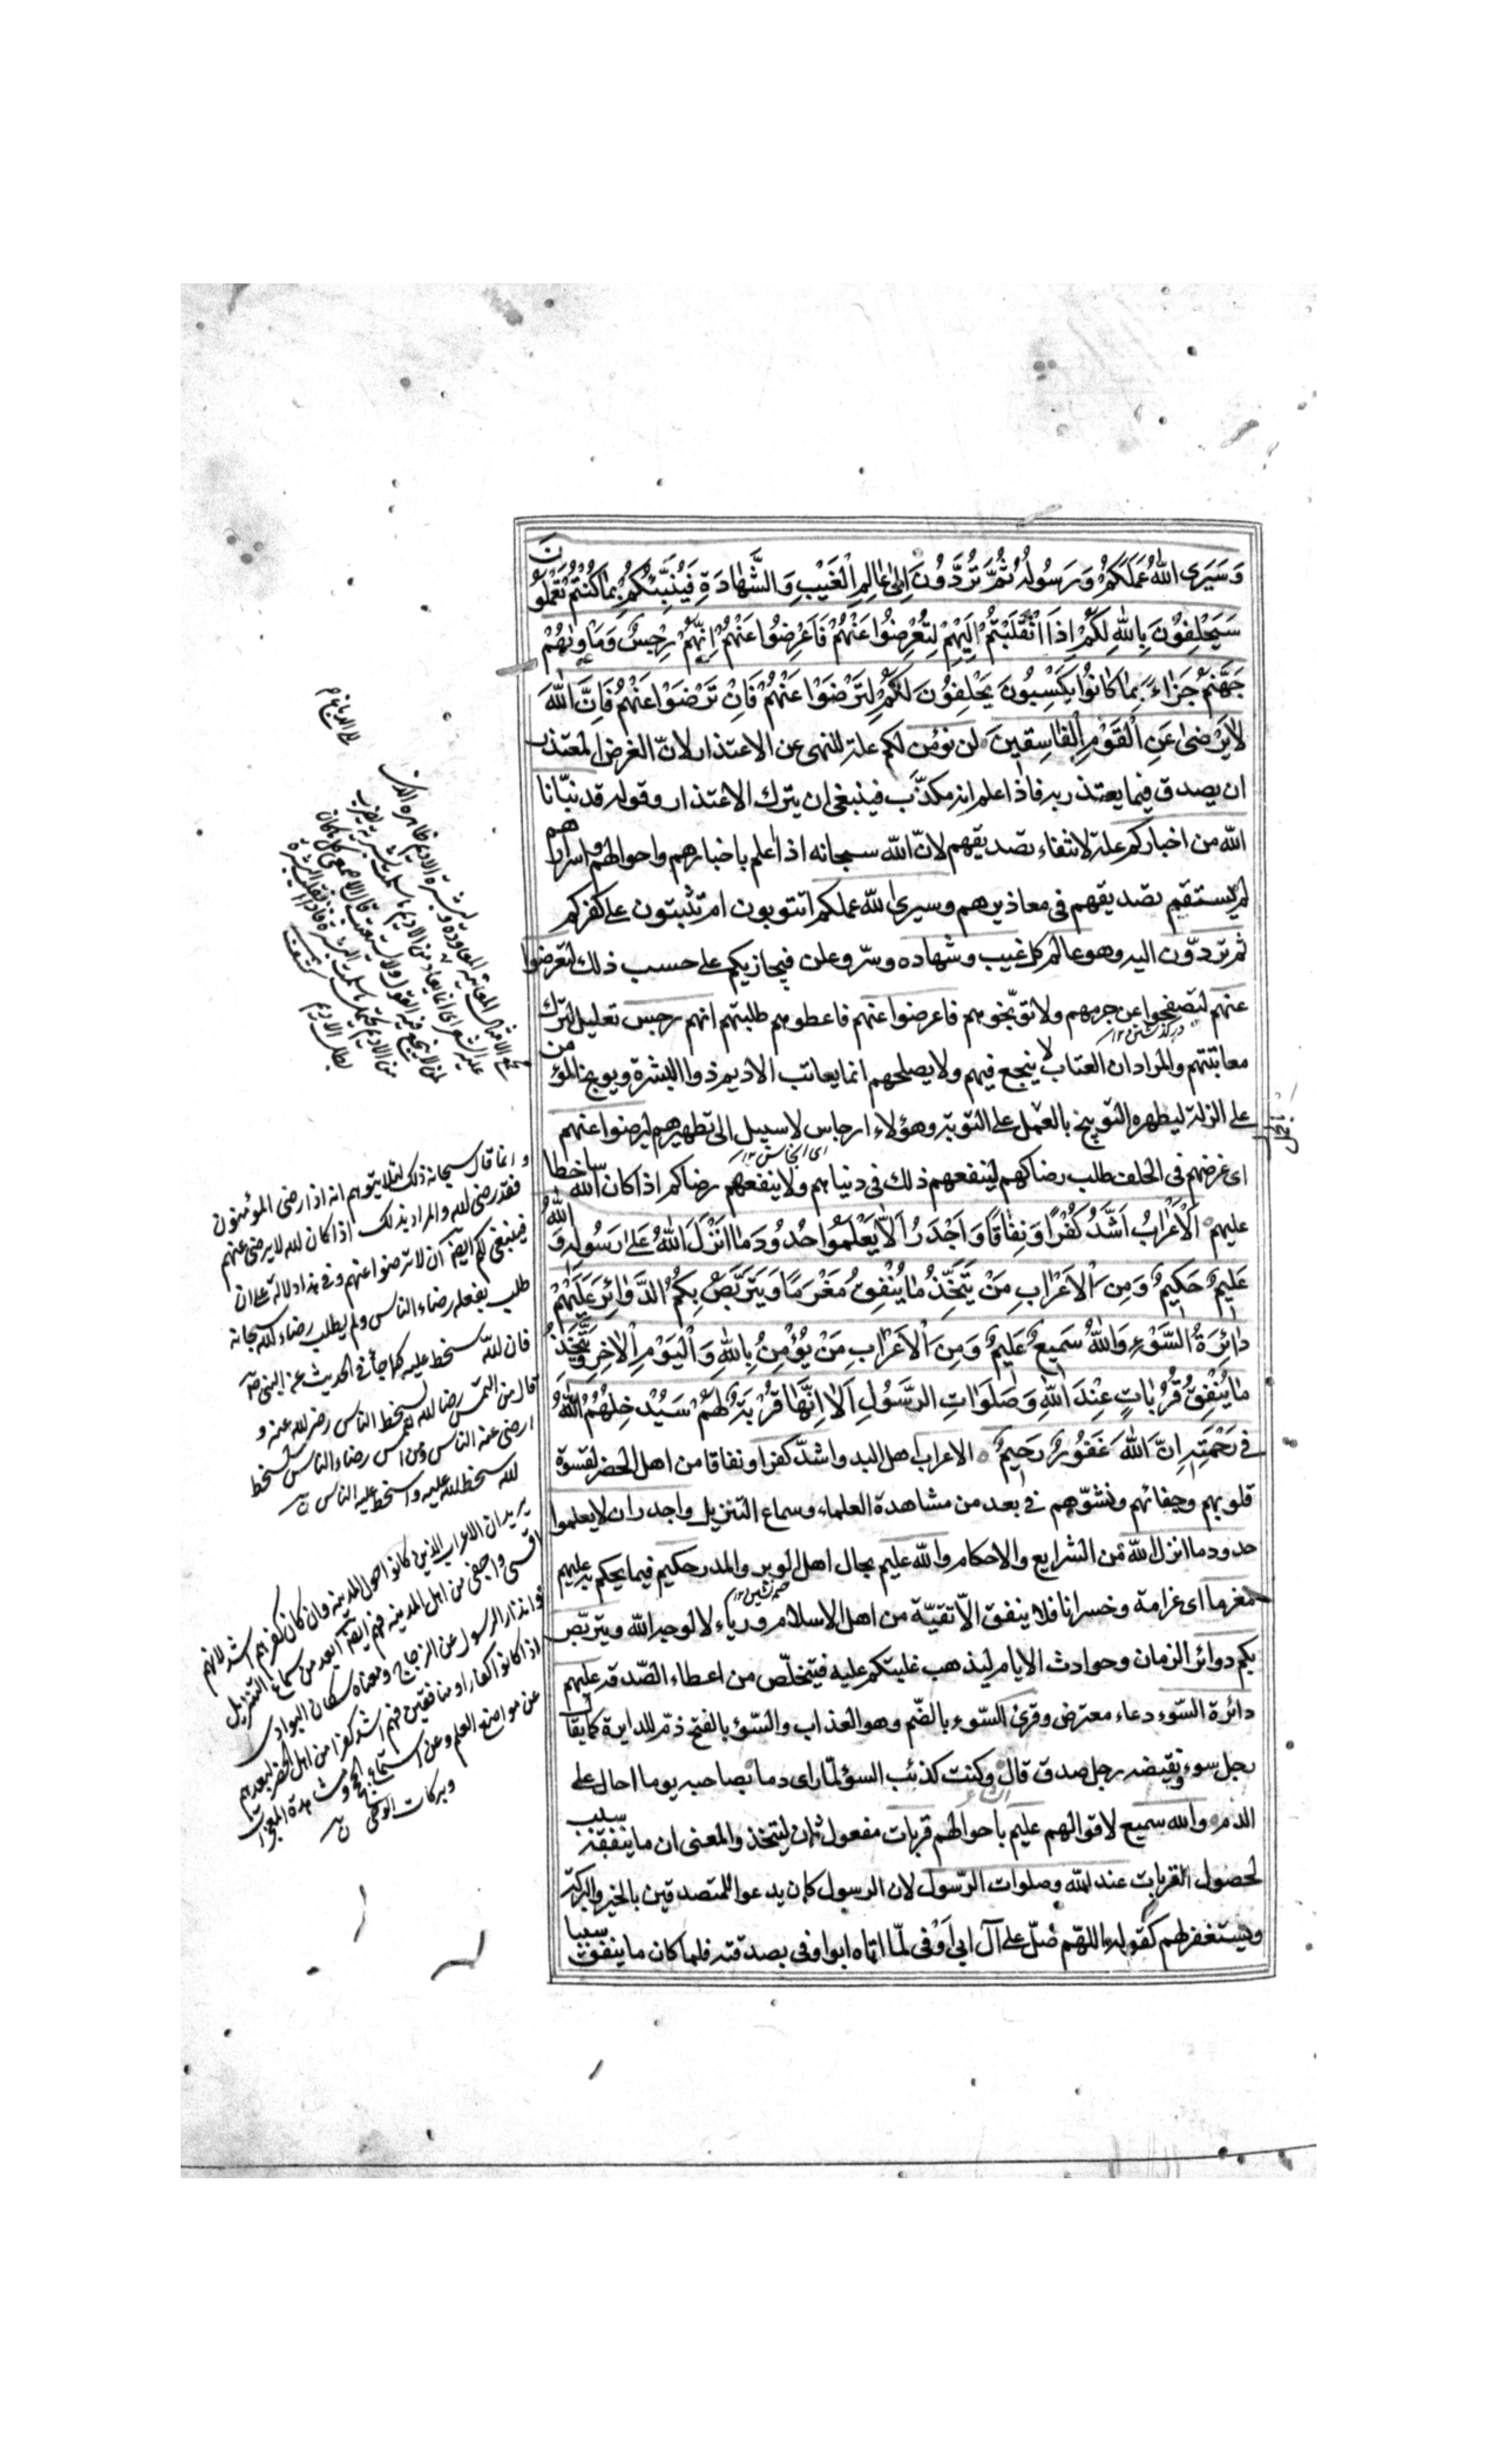 وَسَيَرَى اللّٰهُ عَمَلَكُمْ وَرَسُولُهُ ثُمَّ تُرَدُّونَ اِلٰى عَالِمِ الْغَيْبِ وَالشَّهَادَةِ فَيُنَبِّئُكُمْ بِمَا كُنْتُمْ تَعْمَلُونَ
سَيَحْلِفُونَ بِاللّٰهِ لَكُمْ اِذَا انْقَلَبْتُمْ اِلَيْهِمْ لِتُعْرِضُوا عَنْهُمْ فَاَعْرِضُوا عَنْهُمْ اِنَّهُمْ رِجْسٌ وَمَاْوٰيهُمْ
جَهَنَّمُ جَزَاءً بِمَا كَانُوا يَكْسِبُونَ يَحْلِفُونَ لَكُمْ لِتَرْضَوْا عَنْهُمْ فَاِنْ تَرْضَوْا عَنْهُمْ فَاِنَّ اللّٰهَ
لَا يَرْضٰى عَنِ الْقَوْمِ الْفَاسِقِينَ لن نؤمن لكم علة للنهى عن الاعتذار لانّ الغرض المعتذر
ان يصدق فيما يعتذر به فاذا علم انه مكذّب فينبغى ان يترك الاعتذار وقوله قد نبّانا
الله من اخباركم علة لانتفاء تصديقهم لانّ الله سبحانه اذا علم باخبارهم واحوالهم واسرارهم
لم يستقم تصديقهم فى معاذيرهم وسيرى الله عملكم اتتوبون ام تثبتون على كفركم
ثم تردّون اليه وهو عالم كل غيب وشهاده وسرّ وعلن فيجازيكم على حسب ذلك لتعرضوا
عنهم لتصفحوا عن جرمهم ولا توبّخوهم فاعرضوا عنهم فاعطوهم طلبتهم انهم رجس تعليل لترك
معاتبتهم والمراد ان العتاب لا ينجع فيهم ولا يصلحهم انما يعاتب الاديم ذوا البشرة ويوبخ المؤمن
على الزلة ليطهره التوبيخ بالحمل على التوبة وهؤلاء ارجاس لا سبيل الى تطهيرهم لترضوا عنهم
اى غرضهم فى الحلف طلب رضاكم لينفعهم ذلك فى دنياهم ولا ينفعهم رضاكم اذا كان الله ساخطا
عليهم اَلْاَعْرَابُ اَشَدُّ كُفْرًا وَنِفَاقًا وَاَجْدَرُ اَلَّا يَعْلَمُوا حُدُودَ مَا اَنْزَلَ اللّٰهُ عَلٰى رَسُولِهِ وَاللّٰهُ
عَلِيمٌ حَكِيمٌ وَمِنَ الْاَعْرَابِ مَنْ يَتَّخِذُ مَا يُنْفِقُ مَغْرَمًا وَيَتَرَبَّصُ بِكُمُ الدَّوَائِرَ عَلَيْهِمْ
دَائِرَةُ السَّوْءِ وَاللّٰهُ سَمِيعٌ عَلِيمٌ وَمِنَ الْاَعْرَابِ مَنْ يُؤْمِنُ بِاللّٰهِ وَالْيَوْمِ الْاٰخِرِ وَيَتَّخِذُ
مَا يُنْفِقُ قُرُبَاتٍ عِنْدَ اللّٰهِ وَصَلَوَاتِ الرَّسُولِ اَلَا اِنَّهَا قُرْبَةٌ لَهُمْ سَيُدْخِلُهُمُ اللّٰهُ
فِى رَحْمَتِهِ اِنَّ اللّٰهَ غَفُورٌ رَحِيمٌ الاعراب اهل البدو اشدّ كفرا ونفاقا من اهل الحضر لقسوة
قلوبهم وجفائهم ونشوّهم فى بعد من مشاهدة العلماء وسماع التنزيل واجدر ان لا يعلموا
حدود ما انزل الله من الشرايع والاحكام والله عليم بحال اهل الوبر والمدر حكيم فيما يحكم به عليهم
مغرما اى غرامة وخسرانا فلا ينفق الا تقيّة من اهل الاسلام ورياء لا لوجه الله ويتربّص
بكم دوائر الزمان وحوادث الايام ليذهب غلبتكم عليه فيتخلّص من اعطاء الصّدقة عليهم
دائرة السّوء دعاء معترض وقرئ السّوء بالضّم وهو العذاب والسّوء بالفتح ذمّ للدايرة كما يقال
رجل سوء ونقيضه رجل صدق قال وكنت كذئب السوء لمّا راى دما بصاحبه يوما احال على
الدم والله سميع لاقوالهم عليم باحوالهم قربات مفعول ثان ليتخذ والمعنى ان ما ينفقه سبب
لحصول القربات عند الله وصلوات الرّسول لان الرسول كان يدعو للمتصدقين بالخير والبركة
ويستغفر لهم كقوله اللهمّ صلّ على آل ابى اَوْفى لمّا اتاه ابو اوفى بصدقته فلما كان ما ينفق سببا
وانما قال سبحانه ذلك لئلا يتوهم انه اذا رضى المؤمنون
فقد رضى الله والمراد بذلك اذا كان الله لا يرضى عنهم
فينبغى لكم ايضا ان لا ترضوا عنهم وفى هذا دلالة على ان
طلب بفعله رضاء الناس ولم يطلب رضاء الله سبحانه
فان الله سخط عليه كما جاء فى الحديث عن النبى
قال من التمس رضا الله بسخط الناس رضى الله عنه و
ارضى عنه الناس ومن التمس رضاء الناس بسخط
الله سخط الله عليه واسخط عليه الناس
يريد ان الاعراب الذين كانوا حول المدينه وان كان كفرهم اشد لانهم
اقسى واجفى من اهل المدينه فهم ايضا ابعد من سماع التنزيل
وانذار الرسول عن الزجاج ومعناه سكان البوادى
اذا كانوا كفارا ومنافقين فهم اشد كفرا من اهل الحضر لبعدهم
عن مواضع العلم وعن استماع الحجج ومشاهدة المعجزات
وبركات الوحى